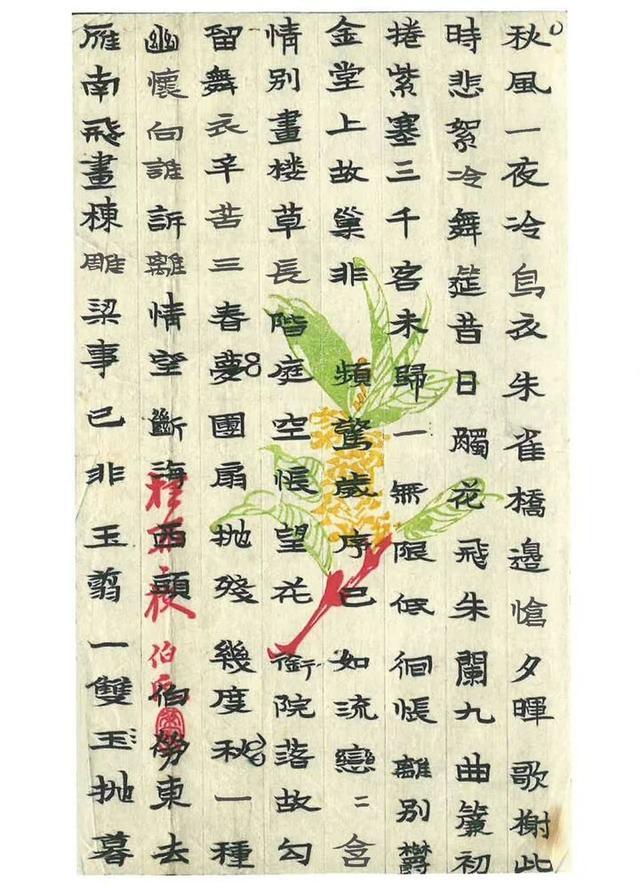 秋風一夜冷烏衣朱雀橋邊愴夕暉歌榭此
時悲絮冷舞筵昔日躅花飛朱闌九曲簾初
捲紫塞三千客未歸一無限低徊悵離別欝
金堂上故巢非頻驚歲序已如流戀〻含
情別畫楼草長階庭空悵望花銜院落故勾
留舞衣辛苦三春夢團扇抛殘幾度秋一種
幽懷向誰訴離情望斷海西頭伯勞東去
雁南飛畫棟雕梁事已非玉翦一雙玉抛暮